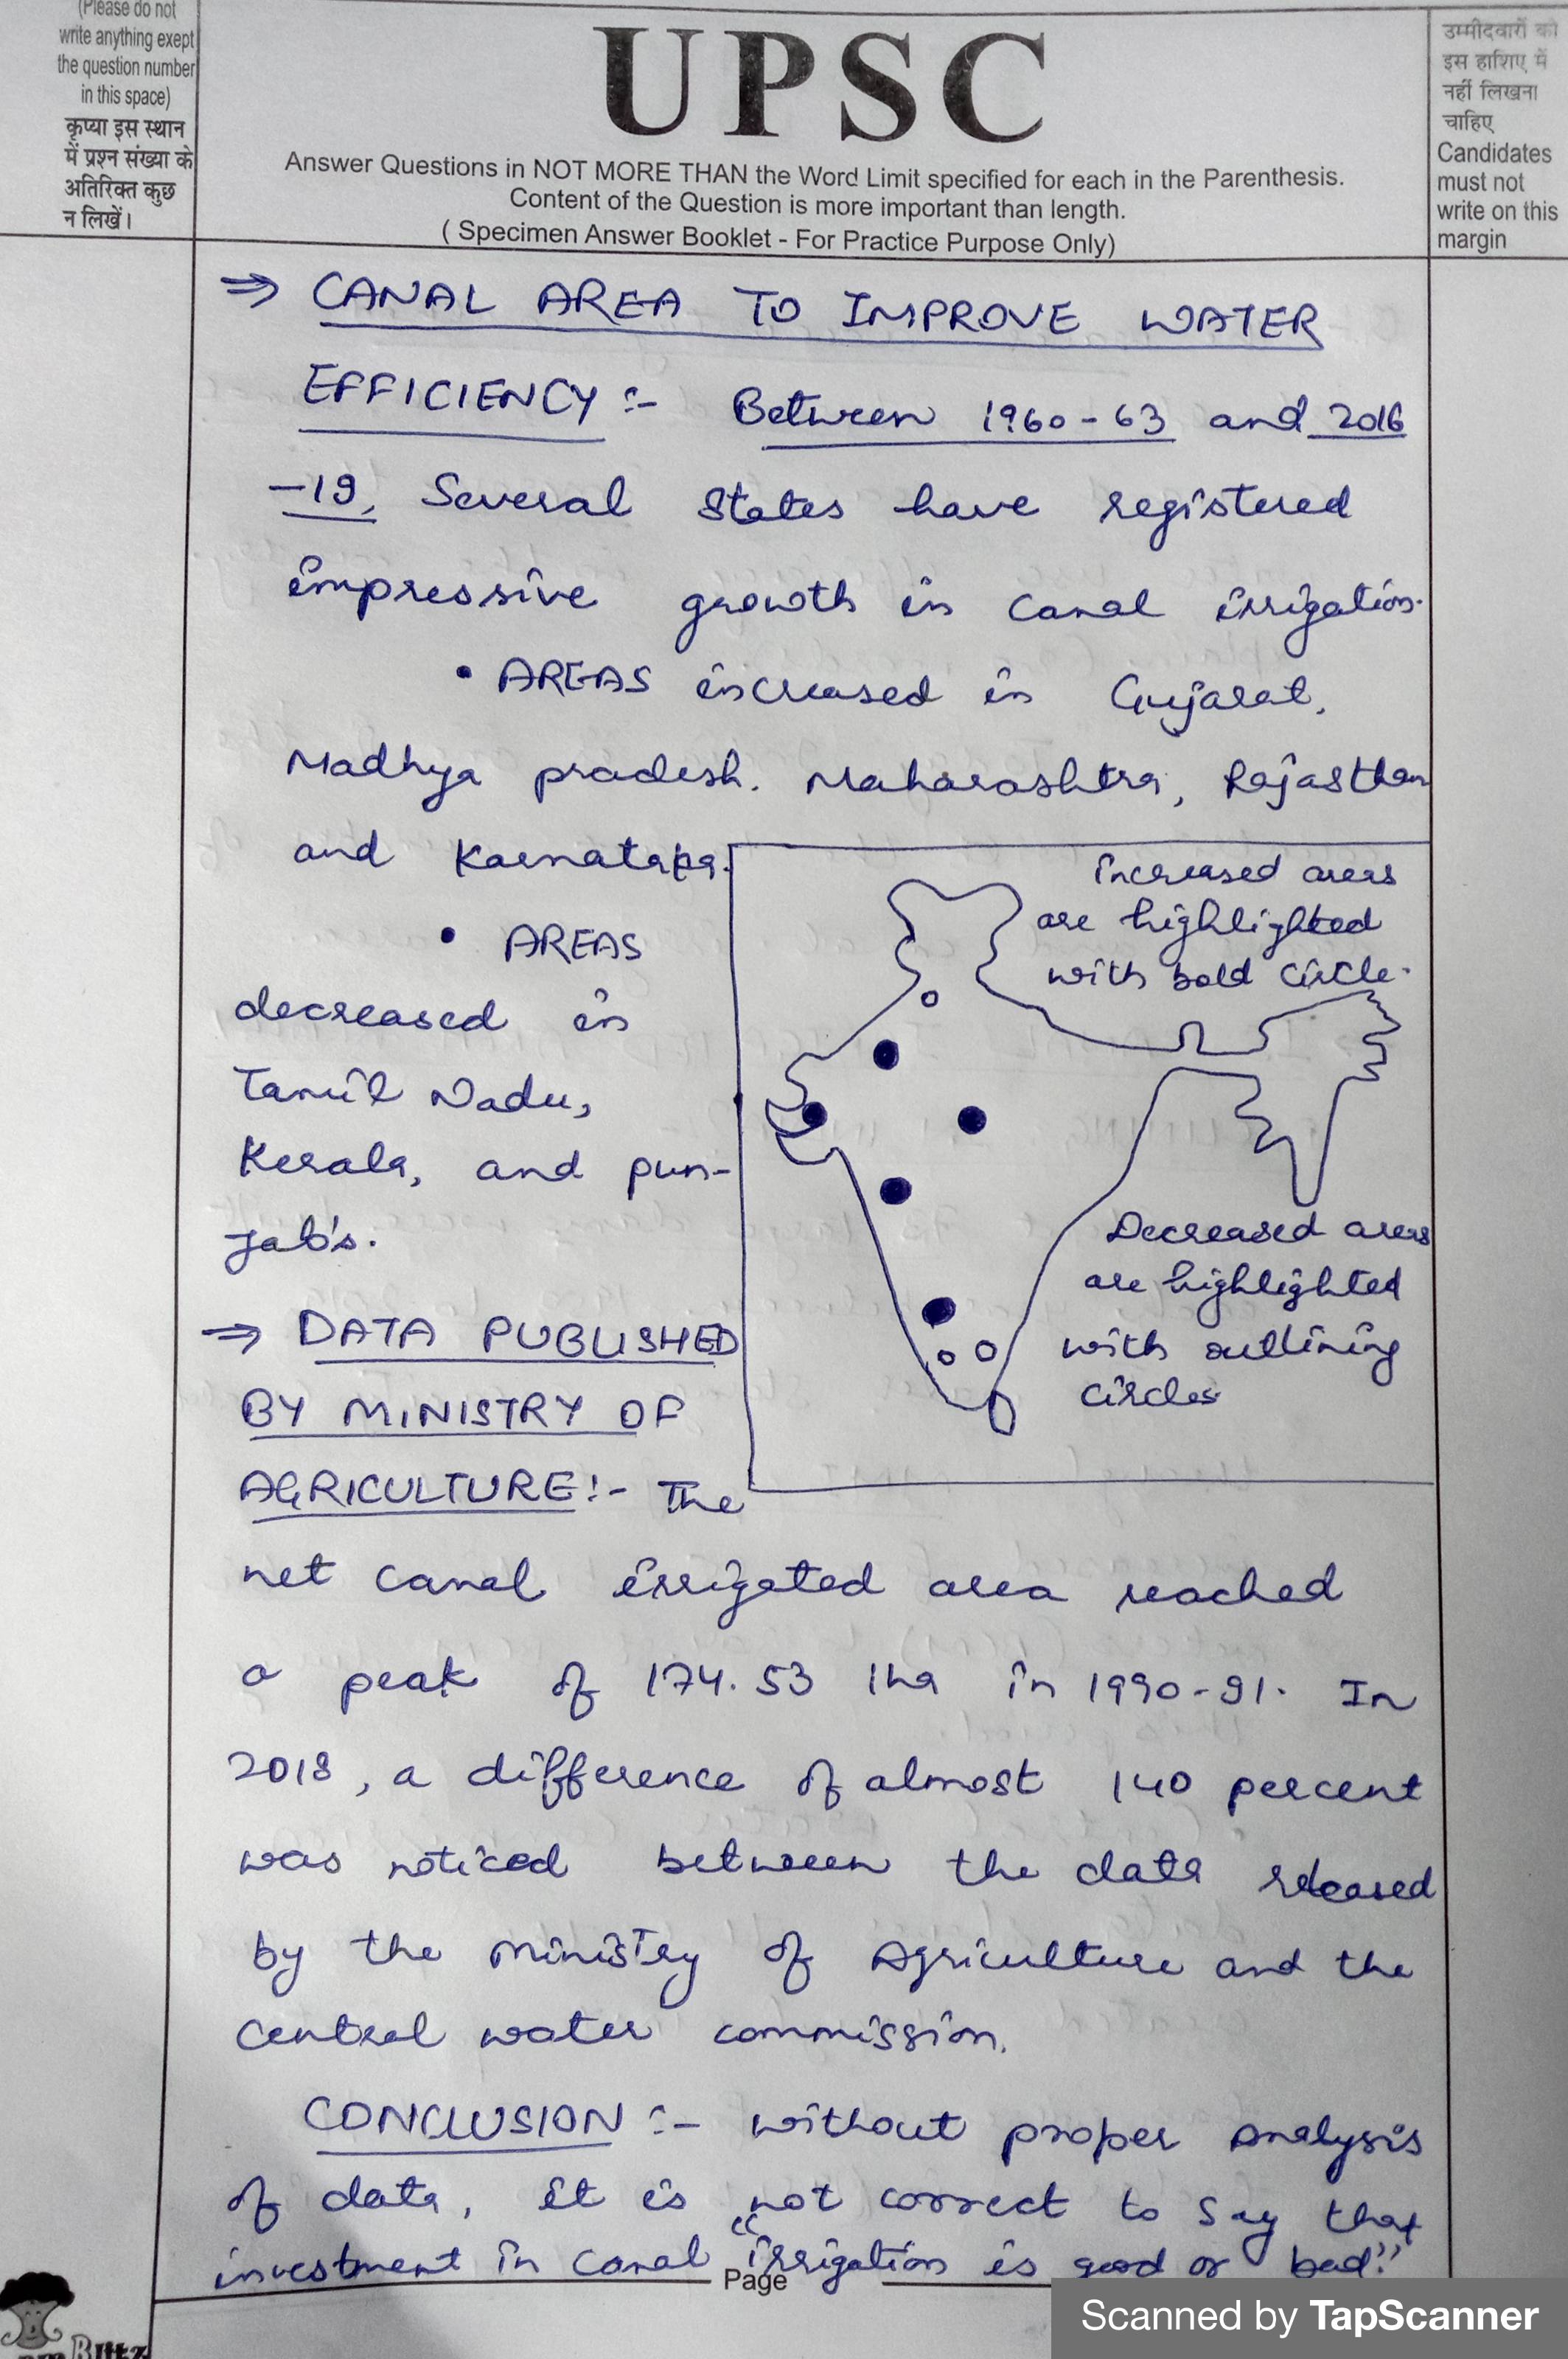 (Please do not
write anything exept
the question number
in this space)
कृप्या इस स्थान
में प्रश्न संख्या के
अतिरिक्त कुछ
न लिखें।
UPSC
Answer Questions in NOT MORE THAN the Word Limit specified for each in the Parenthesis.
Content of the Question is more important than length.
( Specimen Answer Booklet - For Practice Purpose Only)
उम्मीदवारों को
इस हाशिए में
नहीं लिखना
चाहिए
Candidates
must not
write on this
margin
⇒ CANAL AREA TO IMPROVE WATER
EFFICIENCY :- Between 1960-63 and 2016
-19, Several States have registered
impressive growth in canal irrigation.
• AREAS increased in Gujarat,
Madhya pradesh. Maharashtra, Rajasthan
and Karnataka.
• AREAS
decreased in
Tamil Nadu,
Kerala, and pun-
jab's.
increased areas
are highlighted
with bold circle.
Decreased areas
are highlighted
with outlining
circles
⇒ DATA PUBLISHED
BY MINISTRY OF
AGRICULTURE:- The
net canal irrigated area reached
a peak of 174.53 lha in 1990-91. In
2018, a difference of almost 140 percent
was noticed between the data released
by the ministry of Agriculture and the
central water commission.
CONCLUSION :- without proper analysis
of data, it is not correct to say that
investment in canal "irrigation is good or bad."
Page
Scanned by TapScanner